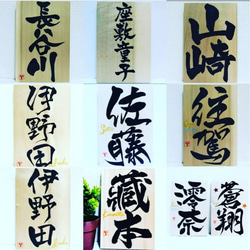 長谷川
座敷童子
山崎
伊野田
佐藤
往駕
伊野田
藏本
澪奈
蒼翔